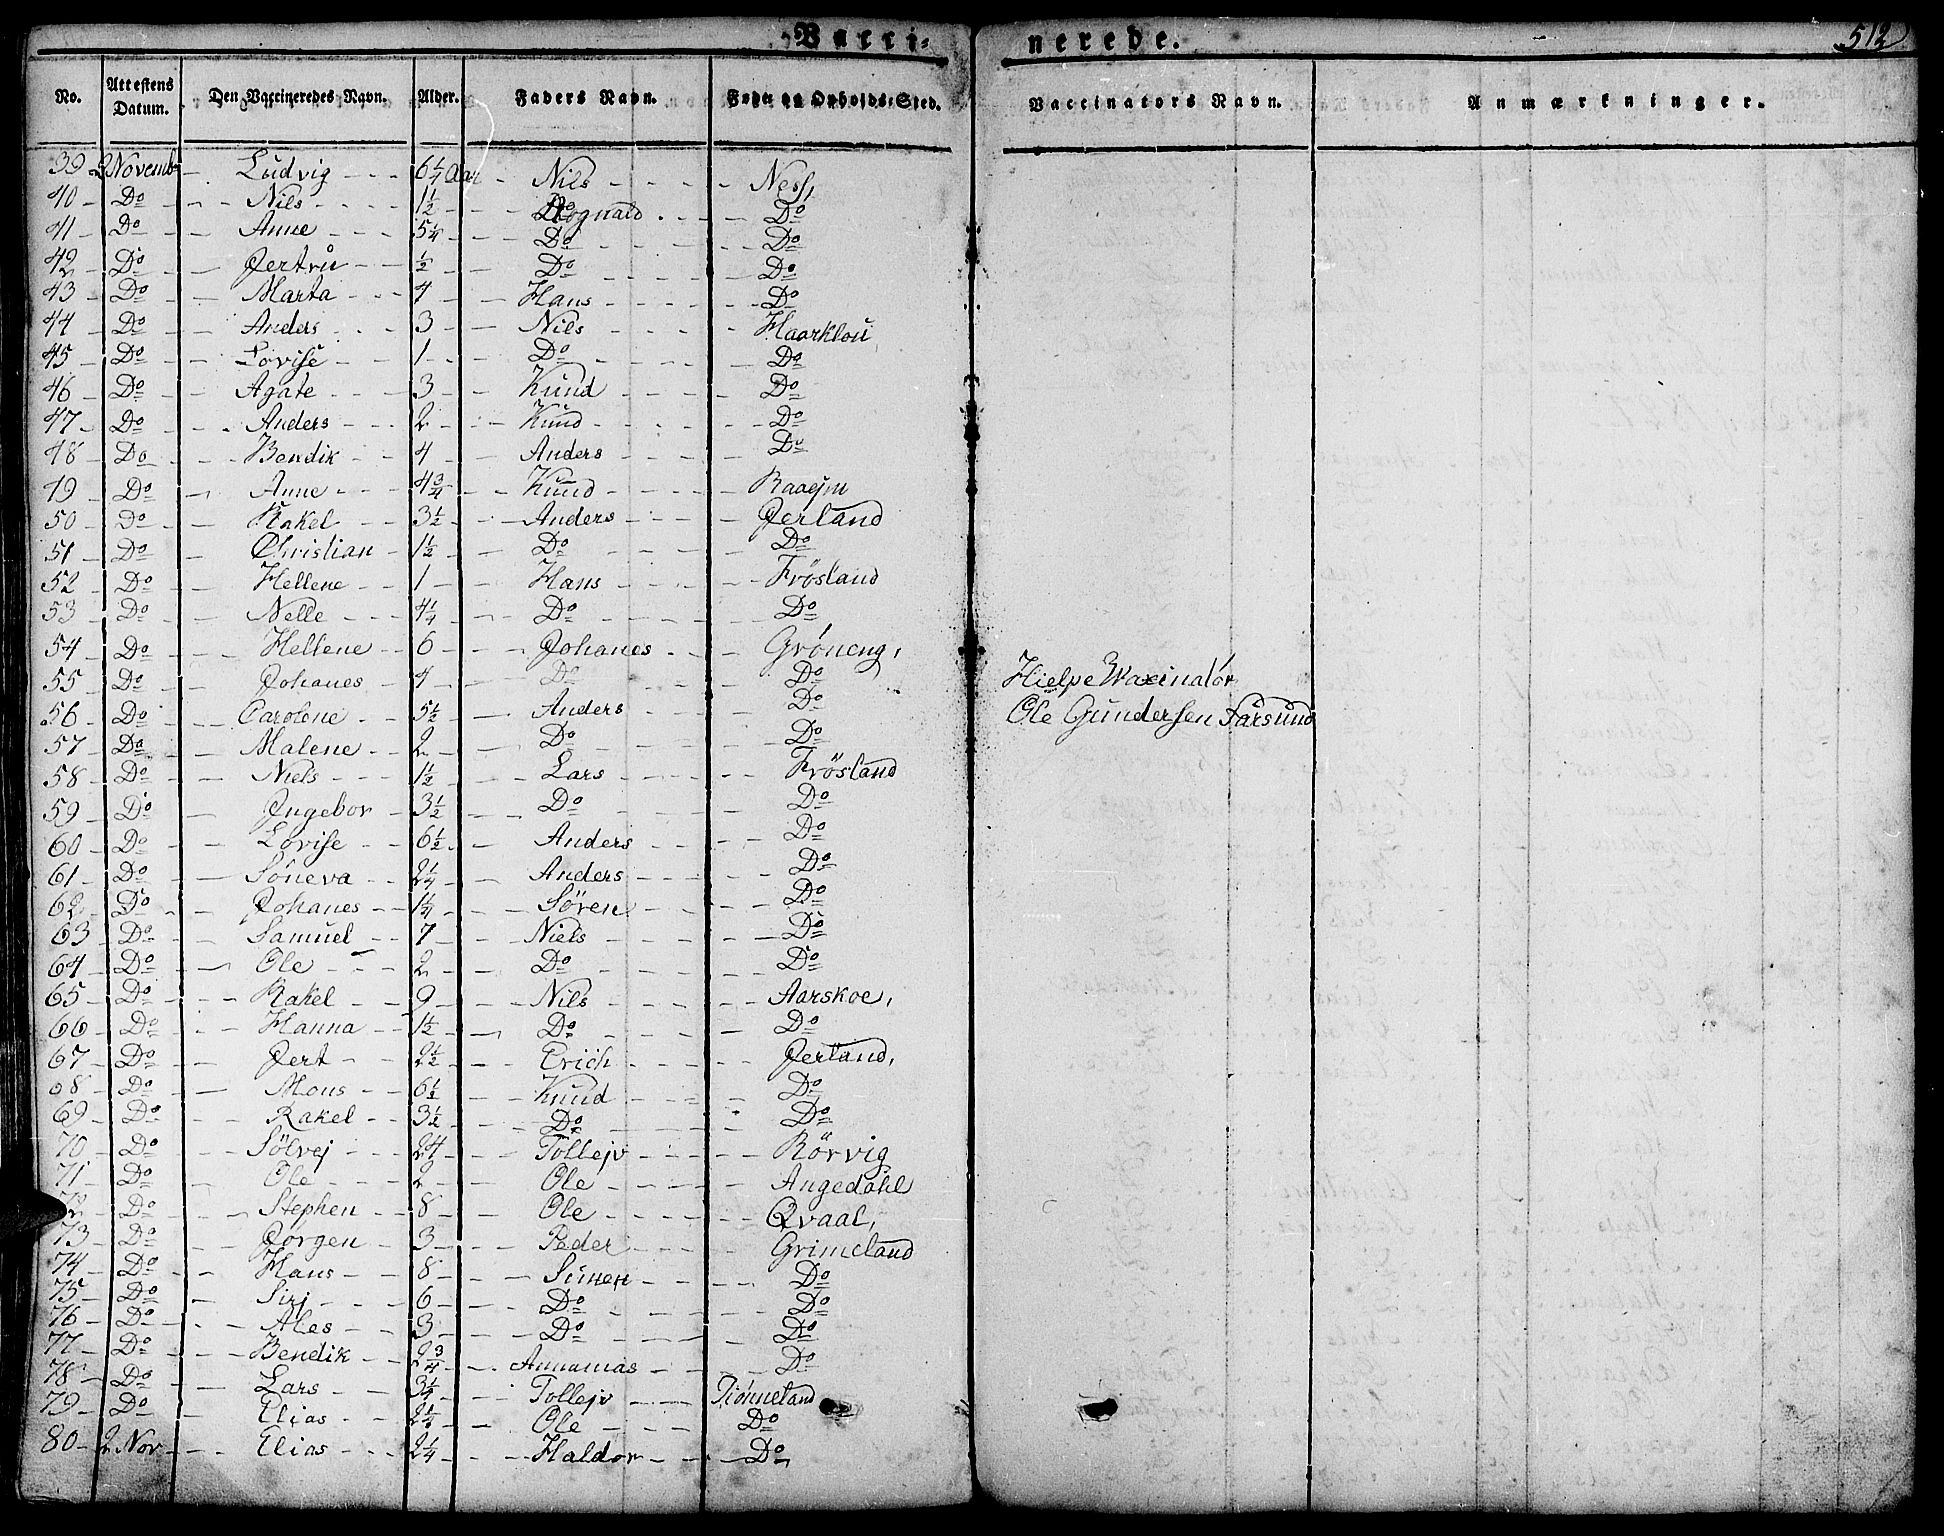 Vacci-
nerede.
512
No. Attestens Datum. Den Vaccineredes Navn. Alder. Faders Navn. Føde og Opholds-Sted. Vaccinators Navn. Anmærkninger.
39 2 Novemb Ludvig 6 1/4 Aar Nils Ness,
40 Do Nils 1 1/2 Rognald Do
41 Do Anne 5 1/4 Do Do
42 Do Jertru 1/2 Do Do
43 Do Marta 4 Hans Do
44 Do Anders 3 Nils Haarklou
45 Do Lovise 1 Do Do
46 Do Agate 3 Knud Do
47 Do Anders 2 Knud Do
48 Do Bendik 4 Anders Do
49 Do Anne 4 3/4 Knud
50 Do Rakel 3 1/2 Anders Jerland
51 Do Christian 1 1/2 Do Do
52 Do Hellene 1 Hans Frösland
53 Do Nelle 4 1/4 Do Do
54 Do Hellene 6 Johanes Gröneng,
55 Do Johanes 4 Do Do
56 Do Carolene 5 1/2 Anders Do
57 Do Malene 2 Do Do
58 Do Niels 1 1/2 Lars Frösland
59 Do Jngebor 3 1/2 Do Do
60 Do Lovise 6 1/2 Anders Do
61 Do Söneva 2 1/4 Anders Do
62 Do Johanes 1 1/4 Sören Do
63 Do Samuel 7 Niels Do
64 Do Ole 2 Do Do
65 Do Rakel 9 Nils Aarskoe,
66 Do Hanna 1 1/2 Do Do
67 Do Jert 2 1/2 Erich Jerland,
68 Do Mons 6 1/2 Knud Do
69 Do Rakel 3 1/2 Do Do
70 Do Sölvej Tollejv Rörvig
71 Do Ole 2 Ole Angedahl
72 Do Stephen 8 Ole Qvaal,
73 Do Jörgen 3 Peder Grimeland
74 Do Hans 8 Do
75 Do Sirj 6 Do Do
76 Do Ales 3 Do Do
77 Do Bendik 2 3/4 Annamas Do
78 Do Lars Tollejv Tiönneland
79 Do Elias Ole Do
80 2 Nov Elias 2 1/4 Haldor Do
Hielpe Waxinatör
Ole Gundersen Farsund